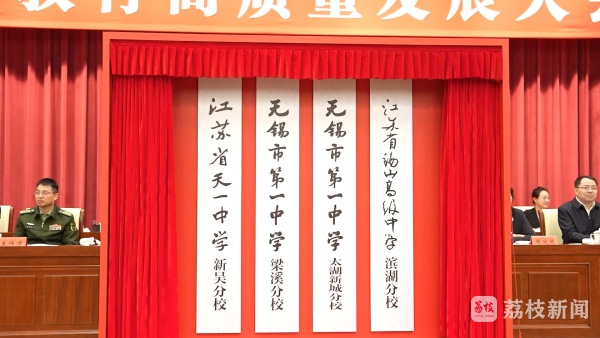 教育高质量发展大会
江苏省天一中学 新吴分校
无锡市第一中学 梁溪分校
无锡市第一中学 太湖新城分校
江苏省锡山高级中学 滨湖分校
荔枝
荔枝新闻